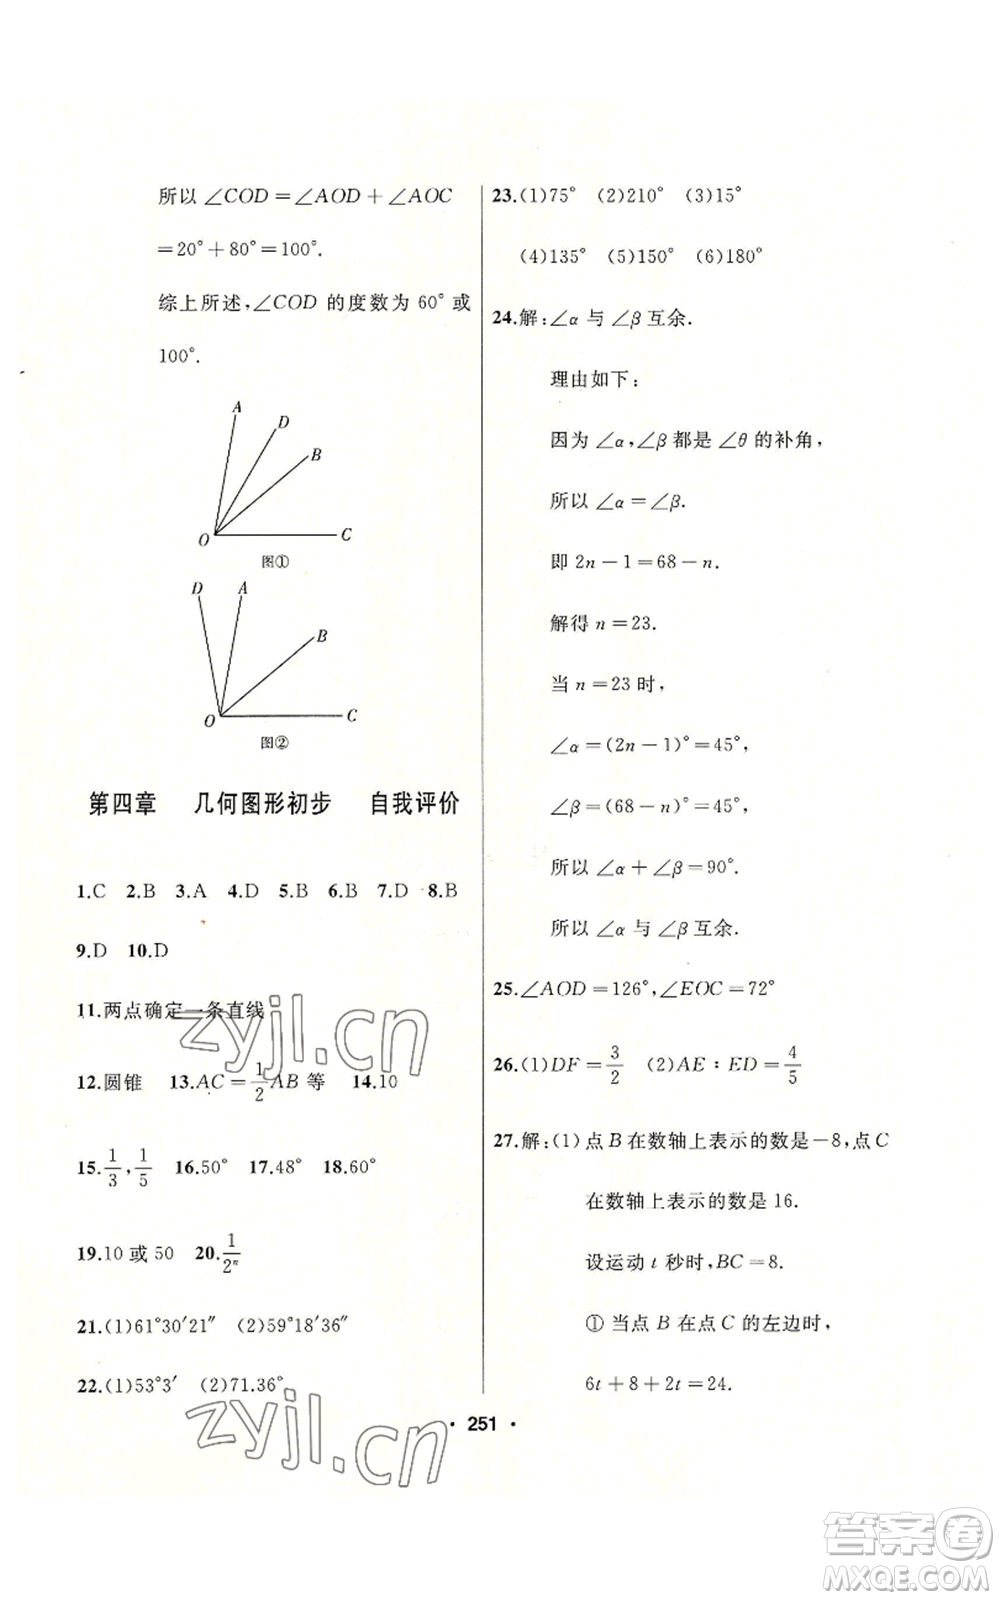 所以∠COD=∠AOD+∠AOC
=20°+80°=100°.
综上所述,∠COD 的度数为 60° 或
100°.
A
D
B
O
C
图①
D
A
B
O
C
图②
第四章 几何图形初步 自我评价
1.C 2.B 3.A 4.D 5.B 6.B 7.D 8.B
9.D 10.D
11.两点确定一条直线
12.圆锥 13.AC=1/2AB 等 14.10
15.1/3,1/5 16.50° 17.48° 18.60°
19.10 或 50 20.1/2ⁿ
21.(1)61°30′21″ (2)59°18′36″
22.(1)53°3′ (2)71.36°
23.(1)75° (2)210° (3)15°
(4)135° (5)150° (6)180°
24.解:∠α 与∠β互余.
理由如下:
因为∠α,∠β都是∠θ的补角,
所以∠α=∠β.
即 2n-1=68-n.
解得 n=23.
当 n=23 时,
∠α=(2n-1)°=45°,
∠β=(68-n)°=45°,
所以∠α+∠β=90°.
所以∠α 与∠β互余.
25.∠AOD=126°,∠EOC=72°
26.(1)DF=3/2 (2)AE:ED=4/5
27.解:(1)点 B 在数轴上表示的数是-8,点 C
在数轴上表示的数是 16.
设运动 t 秒时,BC=8.
①当点 B 在点 C 的左边时,
6t+8+2t=24.
· 251 ·
zyjl.cn
zyjl.cn
答案卷
MXQE.COM